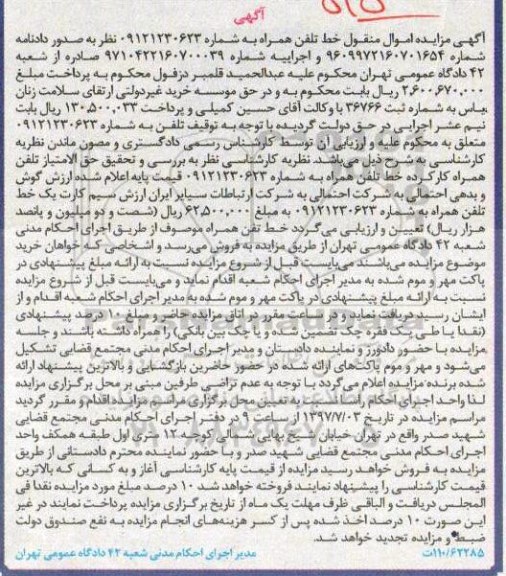 آگهی
آگهی مزایده اموال منقول خط تلفن همراه به شماره ۰۹۱۲۱۲۳۰۶۲۳ نظر به صدور دادنامه
شماره ۹۶۰۹۹۷۲۱۶۰۷۰۱۶۵۴ و اجراییه شماره ۹۷۱۰۴۲۲۱۶۰۷۰۰۰۳۹ صادره از شعبه
۴۲ دادگاه عمومی تهران محکوم علیه عبدالحمید قلمبر دزفول محکوم به پرداخت مبلغ
۲,۶۰۰,۶۷۰,۰۰۰ ریال بابت محکوم به و در حق موسسه خرید غیردولتی ارتقای سلامت زنان
یاس به شماره ثبت ۳۶۷۶۶ با وکالت آقای حسین کمیلی و پرداخت ۱۳۰,۵۰۰,۰۳۳ ریال بابت
نیم عشر اجرایی در حق دولت گردیده با توجه به توقیف تلفن به شماره ۰۹۱۲۱۲۳۰۶۲۳
متعلق به محکوم علیه و ارزیابی آن توسط کارشناس رسمی دادگستری و مصون ماندن نظریه
کارشناسی به شرح ذیل می‌باشد. نظریه کارشناسی نظر به بررسی و تحقیق حق الامتیاز تلفن
همراه کارکرده خط تلفن همراه به شماره ۰۹۱۲۱۲۳۰۶۲۳ قیمت پایه اعلام شده ارزش گوش
و بدهی احتمالی به شرکت احتمالی به شرکت ارتباطات سیایر ایران ارزش سیم کارت یک خط
تلفن همراه به شماره ۰۹۱۲۱۲۳۰۶۲۳ به مبلغ ۶۲,۵۰۰,۰۰۰ ریال (شصت و دو میلیون و پانصد
هزار ریال) تعیین و ارزیابی می‌گردد خط تلفن همراه موصوف از طریق اجرای احکام مدنی
شعبه ۴۲ دادگاه عمومی تهران از طریق مزایده به فروش می‌رسد و اشخاصی که خواهان خرید
موضوع مزایده می‌باشند می‌بایست قبل از شروع مزایده نسبت به ارائه مبلغ پیشنهادی در
پاکت مهر و موم شده به مدیر اجرای احکام شعبه اقدام نماید و می‌بایست قبل از شروع مزایده
نسبت به ارائه مبلغ پیشنهادی در پاکت مهر و موم شده به مدیر اجرای احکام شعبه اقدام و از
ایشان رسید دریافت نماید و در ساعت مقرر در اتاق مزایده حاضر و مبلغ ۱۰ درصد پیشنهادی
(نقدا یا طی یک فقره چک تضمین شده و یا چک بین بانکی) را همراه داشته باشند و جلسه
مزایده با حضور دادورز و نماینده دادستان و مدیر اجرای احکام مدنی مجتمع قضایی تشکیل
می‌شود و مهر و موم پاکت‌های ارائه شده در حضور حاضرین بازگشایی و بالاترین پیشنهاد ارائه
شده برنده مزایده اعلام می‌گردد با توجه به عدم تراضی طرفین مبنی بر محل برگزاری مزایده
لذا واحد اجرای احکام راسا نسبت به تعیین محل برگزاری مراسم مزایده اقدام و مقرر گردید
مراسم مزایده در تاریخ ۱۳۹۷/۷/۰۳ از ساعت ۹ در دفتر اجرای احکام مدنی مجتمع قضایی
شهید صدر واقع در تهران خیابان شیخ بهایی شمالی کوچه ۱۲ متری اول طبقه همکف واحد
اجرای احکام مدنی مجتمع قضایی شهید صدر و با حضور نماینده محترم دادستانی از طریق
مزایده به فروش خواهد رسید مزایده از قیمت پایه کارشناسی آغاز و به کسانی که بالاترین
قیمت کارشناسی را پیشنهاد نمایند فروخته خواهد شد ۱۰ درصد مبلغ مورد مزایده نقدا فی
المجلس دریافت و الباقی ظرف مهلت یک ماه از تاریخ برگزاری مزایده پرداخت نمایند در غیر
این صورت ۱۰ درصد اخذ شده پس از کسر هزینه‌های انجام مزایده به نفع صندوق دولت
ضبط و مزایده تجدید خواهد شد.
۱۱۰/۶۲۲۸۵ت مدیر اجرای احکام مدنی شعبه ۴۲ دادگاه عمومی تهران